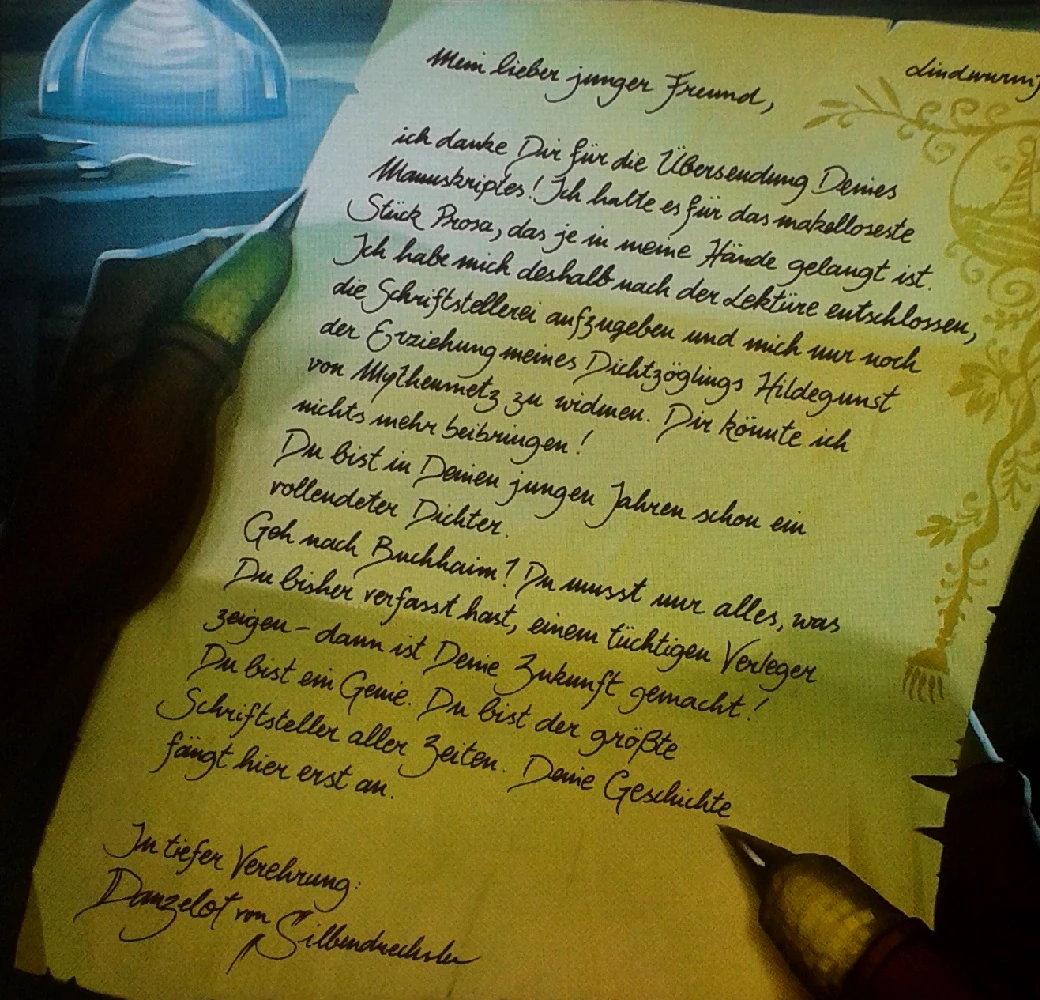 Lindwurmf
Mein lieber junger Freund,
ich danke Dir für die Übersendung Deines
Manuskriptes! Ich halte es für das makelloseste
Stück Prosa, das je in meine Hände gelangt ist.
Ich habe mich deshalb nach der Lektüre entschlossen,
die Schriftstellerei aufzugeben und mich nur noch
der Erziehung meines Dichtzöglings Hildegunst
von Mythenmetz zu widmen. Dir könnte ich
nichts mehr beibringen!
Du bist in Deinen jungen Jahren schon ein
vollendeter Dichter.
Geh nach Buchhaim! Du musst nur alles, was
Du bisher verfasst hast, einem tüchtigen Verleger
zeigen – dann ist Deine Zukunft gemacht!
Du bist ein Genie. Du bist der größte
Schriftsteller aller Zeiten. Deine Geschichte
fängt hier erst an.
In tiefer Verehrung:
Danzelot von Silbendrechsler